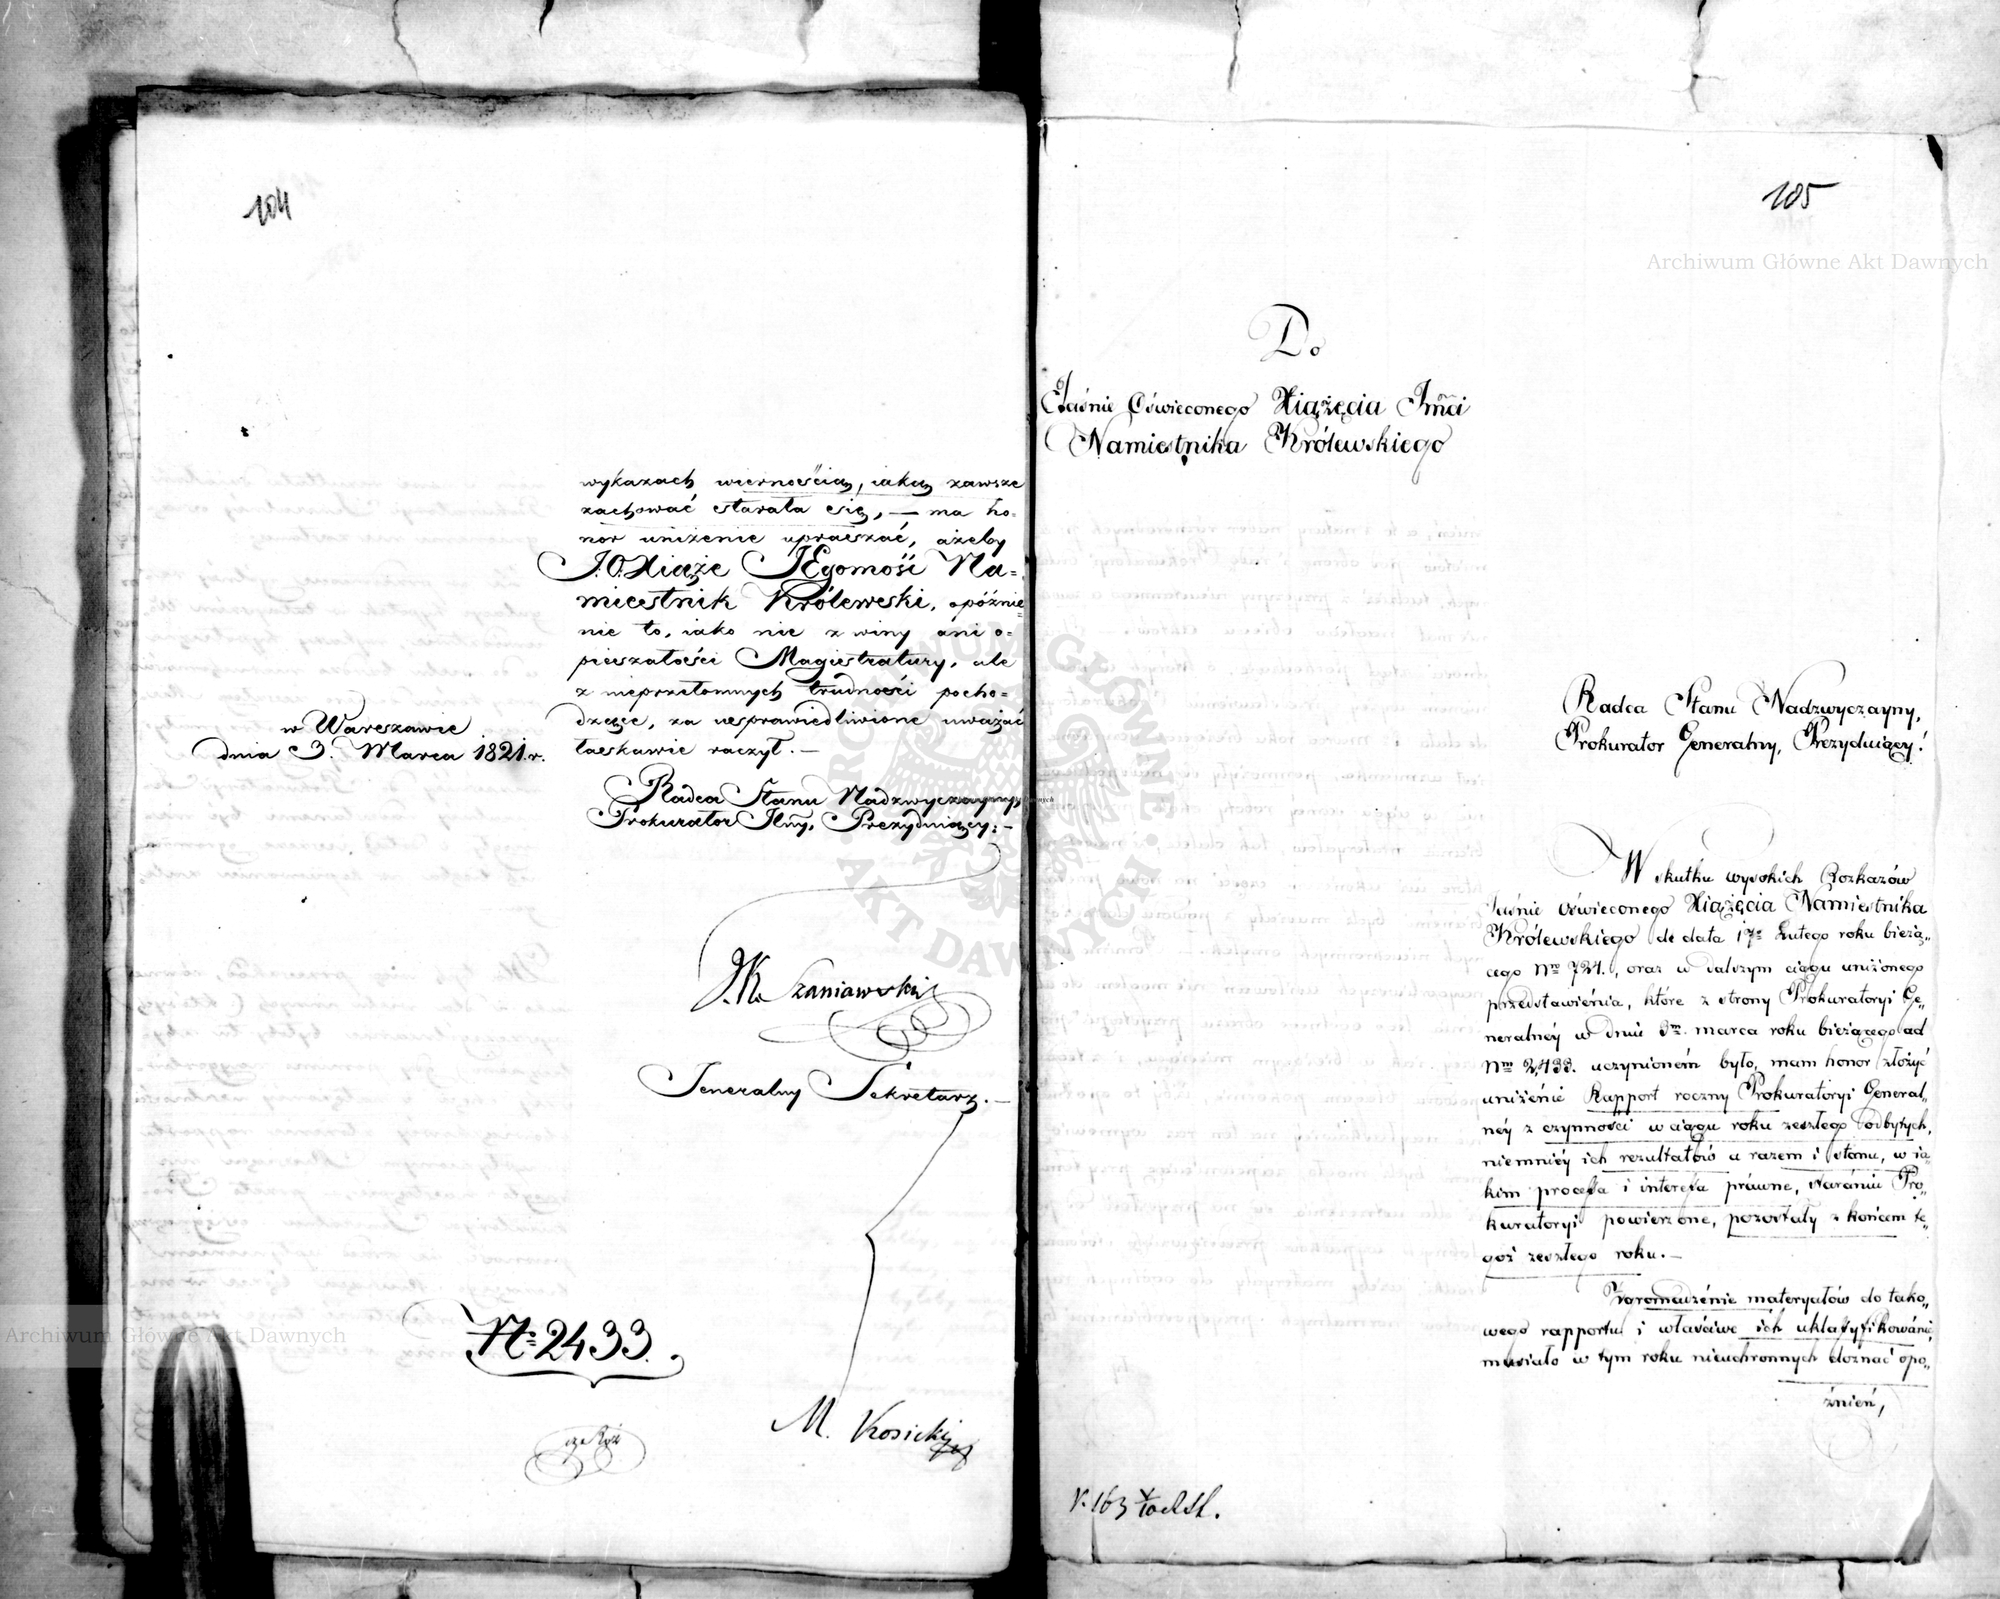 104
wykazach wiernością, iaką zawsze
zachować starała się, — ma ho-
nor uniżenie upraszać, ażeby
J.O. Xiąże JEgomość Na-
miestnik Królewski, opóźnie-
nie to, iako nie z winy ani o-
pieszałości Magistratury, ale
z nieprzełomnych trudności pocho-
dzące, za uesprawiedliwione uważać
łaskawie raczył. —
w Warszawie
dnia 3. Marca 1821. r.
Radca Stanu Nadzwyczayny
Prokurator Jlny, Prezyduiący: —
J.K. Szaniawski
Jeneralny Sekretarz. —
No 2433.
M. Kosicki
105
Archiwum Główne Akt Dawnych
Do
Jaśnie Oświeconego Xiążęcia Jmći
Namiestnika Królewskiego
Radca Stanu Nadzwyczayny,
Prokurator Generalny, Prezyduiący!
W skutku wysokich Rozkazów
Jaśnie Oświeconego Xiążęcia Namiestnika
Królewskiego de dato 17o Lutego roku bieżą„
cego Nro 724., oraz w dalszym ciągu uniżonego
przedstawienia, które z strony Prokuratoryi Ge„
neralnéy w dniu 3m. marca roku bieżącego ad
Nrm 2,433. uczynioném było, mam honor złożyć
uniżénie Rapport roczny Prokuratoryi General„
néy z czynności w ciągu roku zeszłego odbytych,
niemniéy ich rezultatów a razem i stanu, w ia„
kim processa i interessa práwne, staraniu Pro„
kuratoryi powierzone, pozostały z końcem te„
goż zeszłego roku. —
Zgromadzénie materyałów do tako„
wego rapportu i właściwe ich uklassyfikowánie,
musiało w tym roku nieuchronnych doznać opo„
źnień,
ARCHIWUM GŁÓWNE AKT DAWNYCH
Archiwum Główne Akt Dawnych